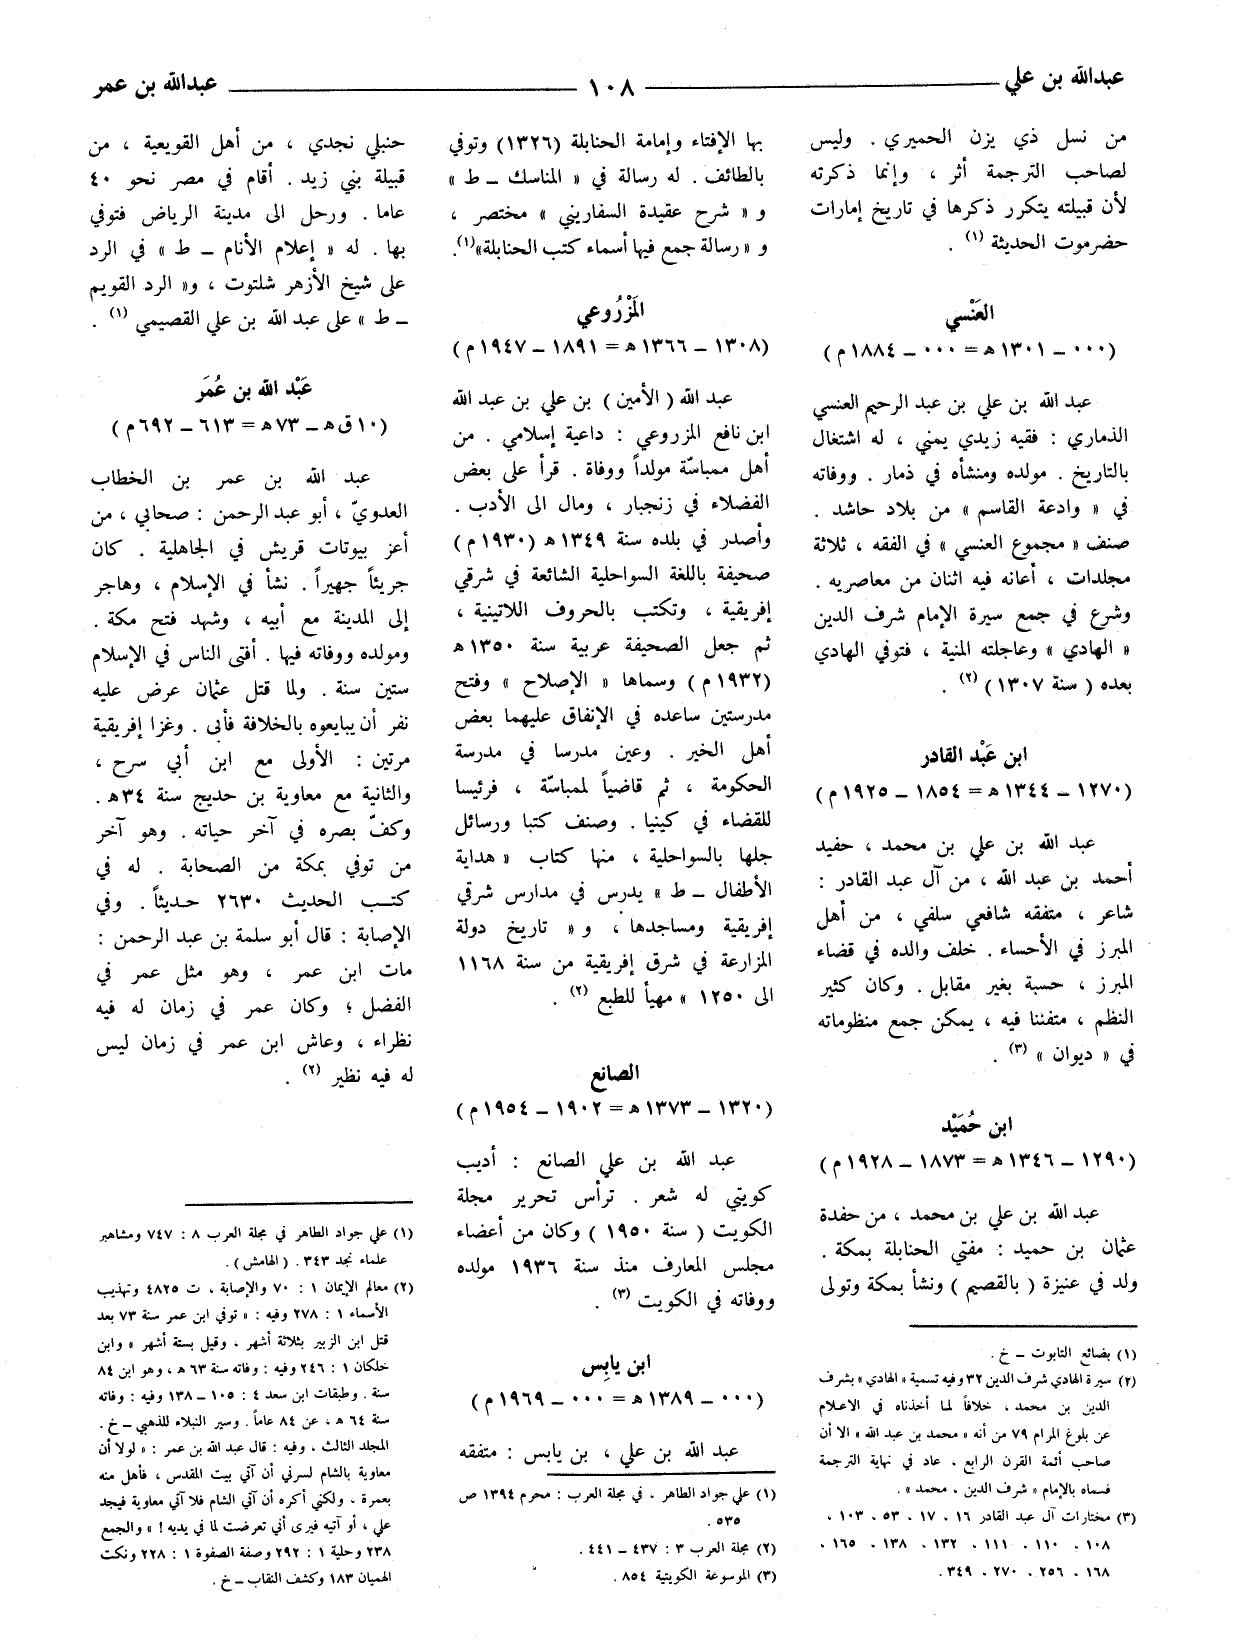 عبدالله بن علي
١٠٨
عبدالله بن عمر
من نسل ذي يزن الحميري . وليس
لصاحب الترجمة أثر ، وإنما ذكرته
لأن قبيلته يتكرر ذكرها في تاريخ إمارات
حضرموت الحديثة (١) .
العَنْسي
(٠٠٠ ــ ١٣٠١ هـ = ٠٠٠ ــ ١٨٨٤ م)
عبد الله بن علي بن عبد الرحيم العنسي
الذماري : فقيه زيدي يمني ، له اشتغال
بالتاريخ . مولده ومنشأه في ذمار . ووفاته
في « وادعة القاسم » من بلاد حاشد .
صنف « مجموع العنسي » في الفقه ، ثلاثة
مجلدات ، أعانه فيه اثنان من معاصريه .
وشرع في جمع سيرة الإمام شرف الدين
« الهادي » وعاجلته المنية ، فتوفي الهادي
بعده ( سنة ١٣٠٧ ) (٢) .
ابن عَبْد القادر
(١٢٧٠ ــ ١٣٤٤ هـ = ١٨٥٤ ــ ١٩٢٥ م)
عبد الله بن علي بن محمد ، حفيد
أحمد بن عبد الله ، من آل عبد القادر :
شاعر ، متفقه شافعي سلفي ، من أهل
المبرز في الأحساء . خلف والده في قضاء
المبرز ، حسبة بغير مقابل . وكان كثير
النظم ، متفننا فيه ، يمكن جمع منظوماته
في « ديوان » (٣) .
ابن حُمَيْد
(١٢٩٠ ــ ١٣٤٦ هـ = ١٨٧٣ ــ ١٩٢٨ م)
عبد الله بن علي بن محمد ، من حفدة
عثمان بن حميد : مفتي الحنابلة بمكة .
ولد في عنيزة ( بالقصيم ) ونشأ بمكة وتولى
(١) بضائع التابوت ــ خ .
(٢) سيرة الهادي شرف الدين ٣٢ وفيه تسمية « الهادي » بشرف
الدين بن محمد ، خلافاً لما أخذناه في الاعلام
عن بلوغ المرام ٧٩ من أنه « محمد بن عبد الله » الا أن
صاحب أئمة القرن الرابع ، عاد في نهاية الترجمة
فسماه بالإمام « شرف الدين ، محمد » .
(٣) مختارات آل عبد القادر ١٦ ، ١٧ ، ٥٣ ، ١٠٣ ،
١٠٨ ، ١١٠ ، ١١١ ، ١٣٢ ، ١٣٨ ، ١٦٥ ،
١٦٨ ، ٢٥٦ ، ٢٧٠ ، ٣٤٩ .
بها الإفتاء وإمامة الحنابلة (١٣٢٦) وتوفي
بالطائف . له رسالة في « المناسك ــ ط »
و « شرح عقيدة السفاريني » مختصر ،
و « رسالة جمع فيها أسماء كتب الحنابلة»(١).
المَزْرُوعي
(١٣٠٨ ــ ١٣٦٦ هـ = ١٨٩١ ــ ١٩٤٧ م)
عبد الله ( الأمين ) بن علي بن عبد الله
ابن نافع المزروعي : داعية إسلامي . من
أهل ممباسّة مولداً ووفاة . قرأ على بعض
الفضلاء في زنجبار ، ومال الى الأدب .
وأصدر في بلده سنة ١٣٤٩ هـ (١٩٣٠ م)
صحيفة باللغة السواحلية الشائعة في شرقي
إفريقية ، وتكتب بالحروف اللاتينية ،
ثم جعل الصحيفة عربية سنة ١٣٥٠ هـ
(١٩٣٢ م) وسماها « الإصلاح » وفتح
مدرستين ساعده في الإنفاق عليهما بعض
أهل الخير . وعين مدرسا في مدرسة
الحكومة ، ثم قاضياً لممباسّة ، فرئيسا
للقضاء في كينيا . وصنف كتبا ورسائل
جلها بالسواحلية ، منها كتاب « هداية
الأطفال ــ ط » يدرس في مدارس شرقي
إفريقية ومساجدها ، و « تاريخ دولة
المزارعة في شرق إفريقية من سنة ١١٦٨
الى ١٢٥٠ » مهيأ للطبع (٢) .
الصانع
(١٣٢٠ ــ ١٣٧٣ هـ = ١٩٠٢ ــ ١٩٥٤ م)
عبد الله بن علي الصانع : أديب
كويتي له شعر . ترأس تحرير مجلة
الكويت ( سنة ١٩٥٠ ) وكان من أعضاء
مجلس المعارف منذ سنة ١٩٣٦ مولده
ووفاته في الكويت (٣) .
ابن يابِس
(٠٠٠ ــ ١٣٨٩ هـ = ٠٠٠ ــ ١٩٦٩ م)
عبد الله بن علي ، بن يابس : متفقه
(١) علي جواد الطاهر ، في مجلة العرب : محرم ١٣٩٤ ص
٥٣٥ .
(٢) مجلة العرب ٣ : ٤٣٧ ــ ٤٤١ .
(٣) الموسوعة الكويتية ٨٥٤ .
حنبلي نجدي ، من أهل القويعية ، من
قبيلة بني زيد . أقام في مصر نحو ٤٠
عاما . ورحل الى مدينة الرياض فتوفي
بها . له « إعلام الأنام ــ ط » في الرد
على شيخ الأزهر شلتوت ، و« الرد القويم
ــ ط » على عبد الله بن علي القصيمي (١) .
عَبْد الله بن عُمَر
(١٠ ق هـ ــ ٧٣ هـ = ٦١٣ ــ ٦٩٢ م)
عبد الله بن عمر بن الخطاب
العدويّ ، أبو عبد الرحمن : صحابي ، من
أعز بيوتات قريش في الجاهلية . كان
جريئاً جهيراً . نشأ في الإسلام ، وهاجر
إلى المدينة مع أبيه ، وشهد فتح مكة .
ومولده ووفاته فيها . أفتى الناس في الإسلام
ستين سنة . ولما قتل عثمان عرض عليه
نفر أن يبايعوه بالخلافة فأبى . وغزا إفريقية
مرتين : الأولى مع ابن أبي سرح ،
والثانية مع معاوية بن حديج سنة ٣٤هـ .
وكفّ بصره في آخر حياته . وهو آخر
من توفي بمكة من الصحابة . له في
كتب الحديث ٢٦٣٠ حديثاً . وفي
الإصابة : قال أبو سلمة بن عبد الرحمن :
مات ابن عمر ، وهو مثل عمر في
الفضل ؛ وكان عمر في زمان له فيه
نظراء ، وعاش ابن عمر في زمان ليس
له فيه نظير (٢) .
(١) علي جواد الطاهر في مجلة العرب ٨ : ٧٤٧ ومشاهير
علماء نجد ٣٤٣ . ( الهامش ) .
(٢) معالم الإيمان ١ : ٧٠ والإصابة ، ت ٤٨٢٥ وتهذيب
الأسماء ١ : ٢٧٨ وفيه : « توفي ابن عمر سنة ٧٣ بعد
قتل ابن الزبير بثلاثة أشهر ، وقيل بستة أشهر » وابن
خلكان ١ : ٢٤٦ وفيه : وفاته سنة ٦٣ هـ ، وهو ابن ٨٤
سنة . وطبقات ابن سعد ٤ : ١٠٥ ــ ١٣٨ وفيه : وفاته
سنة ٦٤ هـ ، عن ٨٤ عاماً . وسير النبلاء للذهبي ــ خ .
المجلد الثالث ، وفيه : قال عبد الله بن عمر : « لولا أن
معاوية بالشام لسرني أن آتي بيت المقدس ، فأهل منه
بعمرة ، ولكني أكره أن آتي الشام فلا آتي معاوية فيجد
علي ، أو آتيه فيرى أني تعرضت لما في يديه ! » والجمع
٢٣٨ وحلية ١ : ٢٩٢ وصفة الصفوة ١ : ٢٢٨ ونكت
الهميان ١٨٣ وكشف النقاب ــ خ .